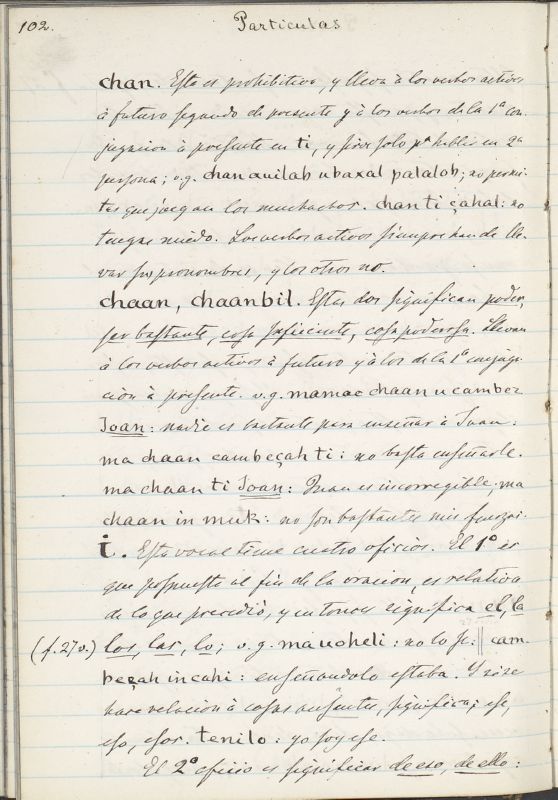 102. Particulas
chan. Esta es prohibitiva, y lleva à los verbos activos
à futuro segundo de presente y à los verbos de la 1ª con-
jugacion à presente en ti, y sirve solo pª hablar en 2ª
persona; v.g. chan auilab ubaxal palalob; no permi-
tas que juegan los muchachos. chan ti çahal: no
tengas miedo. Los verbos activos siempre han de lle-
var sus pronombres, y los otros no.
chaan, chaanbil. Estas dos significan poder,
ser bastante, cosa suficiente, cosa poderosa. Llevan
à los verbos activos à futuro y à los de la 1ª conjuga-
cion à presente. v.g. mamac chaan u cambez
Joan: nadie es bastante para enseñar à Juan:
ma chaan cambeçah ti: no basta enseñarle.
ma chaan ti Joan: Juan es incorregible; ma
chaan in muk: no son bastantes mis fuerzas.
i. Esta vocal tiene cuatro oficios. El 1º es
que pospuesta al fin de la oracion, es relativa
de lo que precedió, y entonces significa el, la
(f. 27 v.) los, las, lo; v.g. ma uoheli: no lo se: || cam
beçah in cahi: enseñandolo estaba. Y si se
hace relacion à cosas ausentes, significa; ese,
eso, esos. tenilo: yo soy ese.
El 2º oficio es significar de eso, de ello: